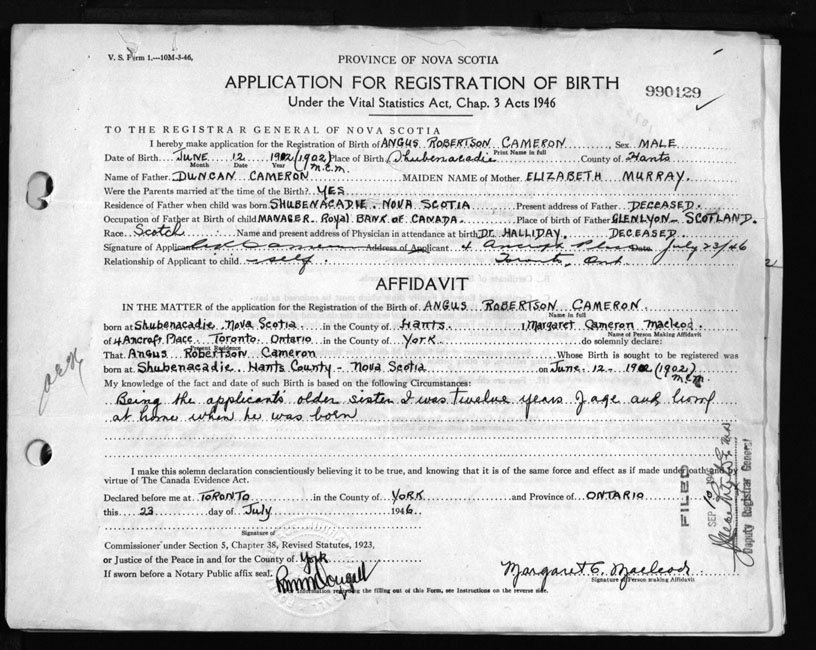 V. S. Form 1.—10M-3-46,
PROVINCE OF NOVA SCOTIA
APPLICATION FOR REGISTRATION OF BIRTH
990129
Under the Vital Statistics Act, Chap. 3 Acts 1946
TO THE REGISTRAR GENERAL OF NOVA SCOTIA
I hereby make application for the Registration of Birth of ANGUS ROBERTSON CAMERON, Sex MALE
Print Name in full
Date of Birth JUNE 12 1902 (1902) Place of Birth Shubenacadie County of Hants
Month Date Year M.C.M.
Name of Father DUNCAN CAMERON MAIDEN NAME of Mother ELIZABETH MURRAY.
Were the Parents married at the time of the Birth? YES
Residence of Father when child was born SHUBENACADIE. NOVA SCOTIA Present address of Father DECEASED.
Occupation of Father at Birth of child MANAGER- Royal BANK of CANADA. Place of birth of Father GLENLYON- SCOTLAND.
Race Scotch Name and present address of Physician in attendance at birth DR. HALLIDAY. DECEASED.
Signature of Applicant Cameron Address of Applicant 4 Ancroft Place Date July 23/46
Relationship of Applicant to child self. Toronto, Ont
AFFIDAVIT
IN THE MATTER of the application for the Registration of the Birth of ANGUS ROBERTSON CAMERON.
Name in full
born at Shubenacadie, Nova Scotia in the County of Hants. I Margaret Cameron Macleod.
Name of Person Making Affidavit
of 4 Ancroft Place. Toronto. Ontario in the County of York do solemnly declare:
Present Residence
That Angus Robertson Cameron Whose Birth is sought to be registered was
born at Shubenacadie. Hants County - Nova Scotia on June. 12- 1902 (1902)
M.C.M.
My knowledge of the fact and date of such Birth is based on the following Circumstances:
Being the applicants older sister I was twelve years of age and living
at home when he was born
I make this solemn declaration conscientiously believing it to be true, and knowing that it is of the same force and effect as if made under oath and by
virtue of The Canada Evidence Act.
Declared before me at TORONTO in the County of YORK and Province of ONTARIO
this 23 day of July 1946
Signature of
Commissioner under Section 5, Chapter 38, Revised Statutes, 1923,
or Justice of the Peace in and for the County of York
If sworn before a Notary Public affix seal.
Margaret C. Macleod.
Signature of Person making Affidavit
Information regarding the filling out of this Form, see Instructions on the reverse side.
FILED
SEP 10
Deputy Registrar General